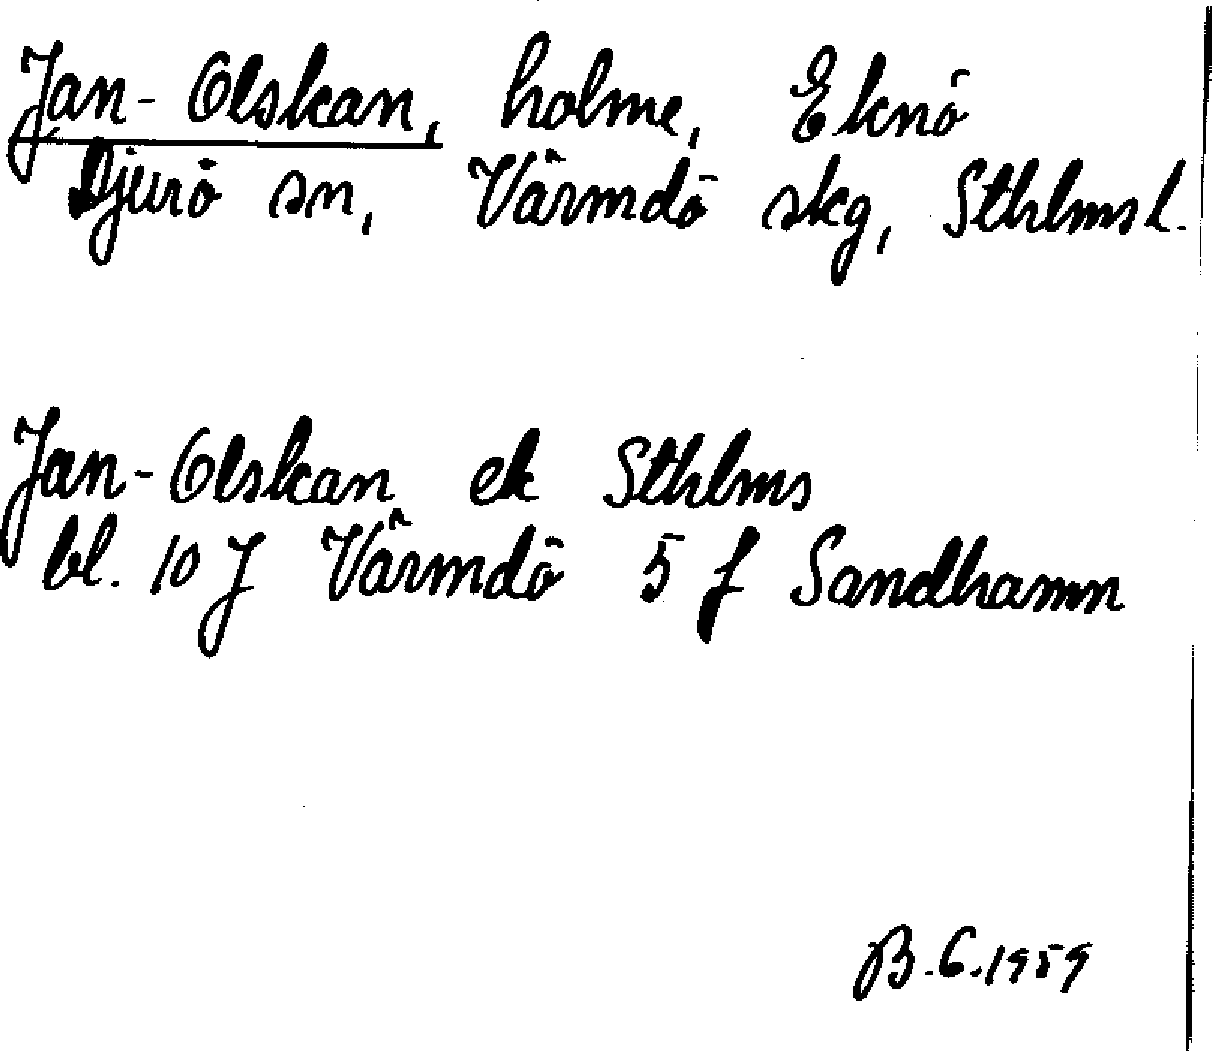 Jan-Olskan, holme, Eknö
Djurö sn, Värmdö skg, Sthlms l.
Jan-Olskan ek Sthlms
bl. 10 J Värmdö 5 f Sandhamn
B.G.1959